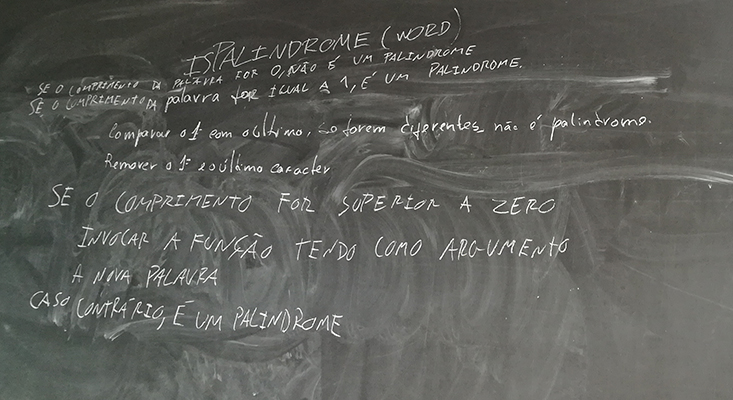 ISPALINDROME (WORD)
SE O COMPRIMENTO DA PALAVRA FOR 0, NÃO É UM PALINDROME
SE O COMPRIMENTO DA palavra for IGUAL A 1, É UM PALINDROME.
Comparar o 1º com o último, se forem diferentes não é palindromo.
Remover o 1º e o último caracter
SE O COMPRIMENTO FOR SUPERIOR A ZERO
INVOCAR A FUNÇÃO TENDO COMO ARGUMENTO
A NOVA PALAVRA
CASO CONTRÁRIO, É UM PALINDROME